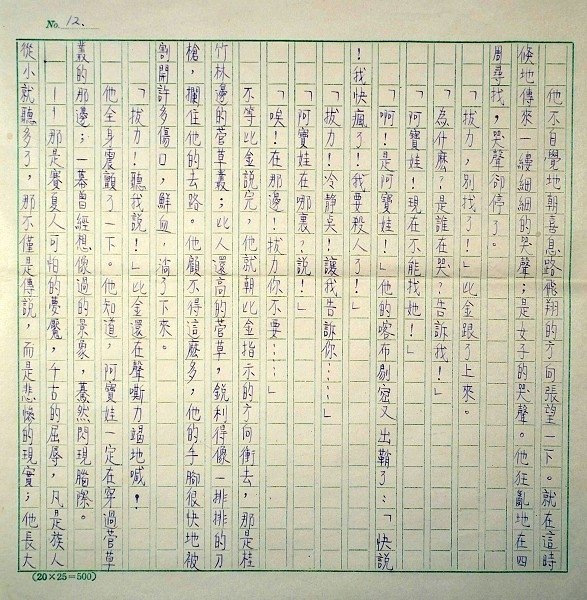 No. 12.
他不自覺地朝喜息路飛翔的方向張望一下。就在這時
倏地傳來一縷細細的哭聲；是女子的哭聲。他狂亂地在四
周尋找，哭聲卻停了。
「拔力，別找了！」比金跟了上來。
「為什麼？是誰在哭？告訴我！」
「阿寶娃！現在不能找她！」
「啊！是阿寶娃！」他的喀布剔密又出鞘了：「快說
！我快瘋了！我要殺人了！」
「拔力！冷靜矣！讓我告訴你……」
「阿寶娃在哪裏？說！」
「唉！在那邊！拔力你不要……」
不等比金說完，他就朝比金指示的方向衝去，那是桂
竹林邊的菅草叢；比人還高的菅草，銳利得像一排排的刀
槍，攔住他的去路。他顧不得這麼多，他的手腳很快地被
割開許多傷口，鮮血，淌了下來。
「拔力！聽我說！」比金還在聲嘶力竭地喊！
他全身震顫了一下。他知道，阿寶娃一定在穿過菅草
叢的那邊；一幕曾經想像過的景象，驀然閃現腦際。
——那是賽夏人可怕的夢魘，千古的屈辱，凡是族人
從小就聽多了，那不僅是傳說，而是悲慘的現實；他長大
(20×25=500)